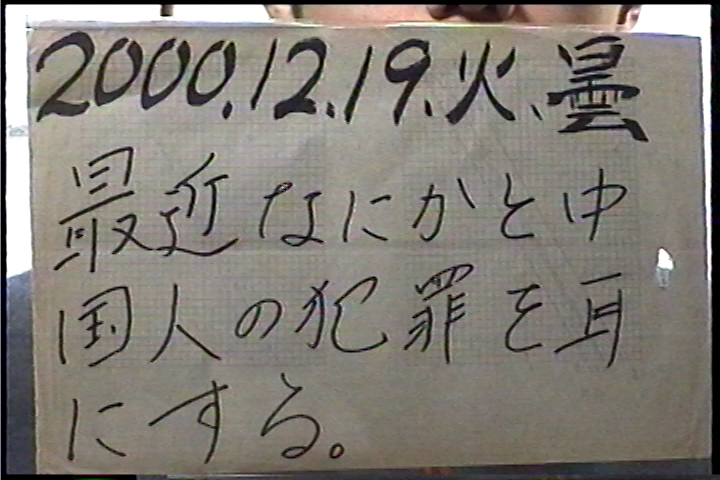 2000.12.19.火、曇
最近なにかと中
国人の犯罪を耳
にする。